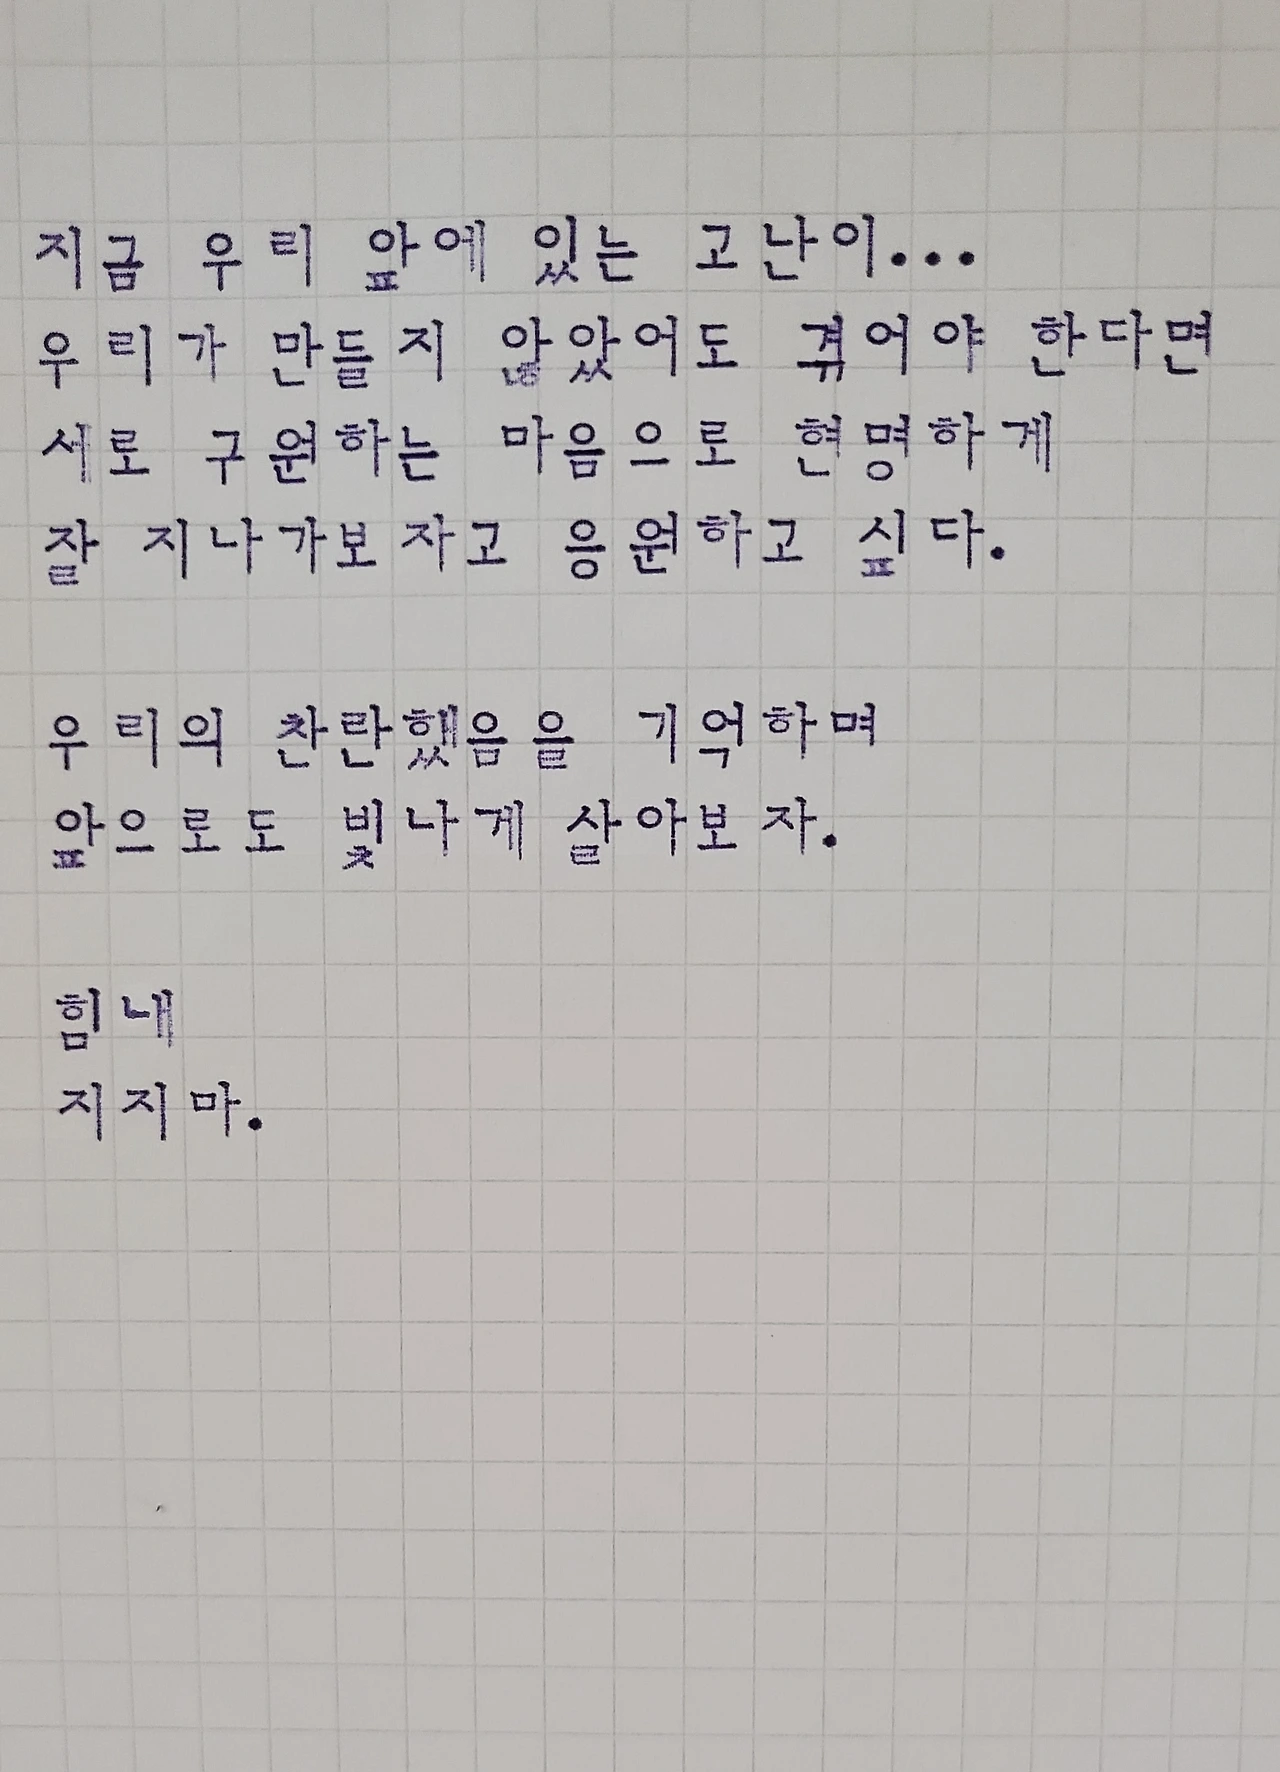 지금 우리 앞에 있는 고난이...
우리가 만들지 않았어도 겪어야 한다면
서로 구원하는 마음으로 현명하게
잘 지나가보자고 응원하고 싶다.
우리의 찬란했음을 기억하며
앞으로도 빛나게 살아보자.
힘내
지지마.